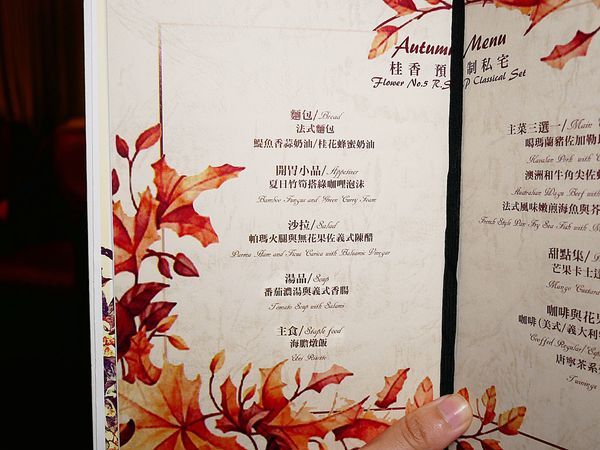 Autumn Menu
桂香 預 制私宅
Flower No.5 R.S P Classical Set
麵包/Bread
法式麵包
鯷魚香蒜奶油/桂花蜂蜜奶油
開胃小品/Appetiser
夏日竹筍搭綠咖哩泡沫
Bamboo Fungus and Green Curry Foam
沙拉/Salad
帕瑪火腿與無花果佐義式陳醋
Parma Ham and Ficus Carica with Balsamic Vinegar
湯品/Soup
番茄濃湯與義式香腸
Tomato Soup with Salami
主食/Staple food
海膽燉飯
Uni Risotto
主菜三選一/Main
噶瑪蘭豬佐加勒
Kavalan Pork with
澳洲和牛角尖佐
Australian Wagyu Beef with
法式風味嫩煎海魚與芥
French Style Pan Fry Sea Fish with
甜點集/
芒果卡士達
Mango Custard
咖啡與花
咖啡(美式/義大利
Coffee(Regular/
唐寧茶系
Twinings